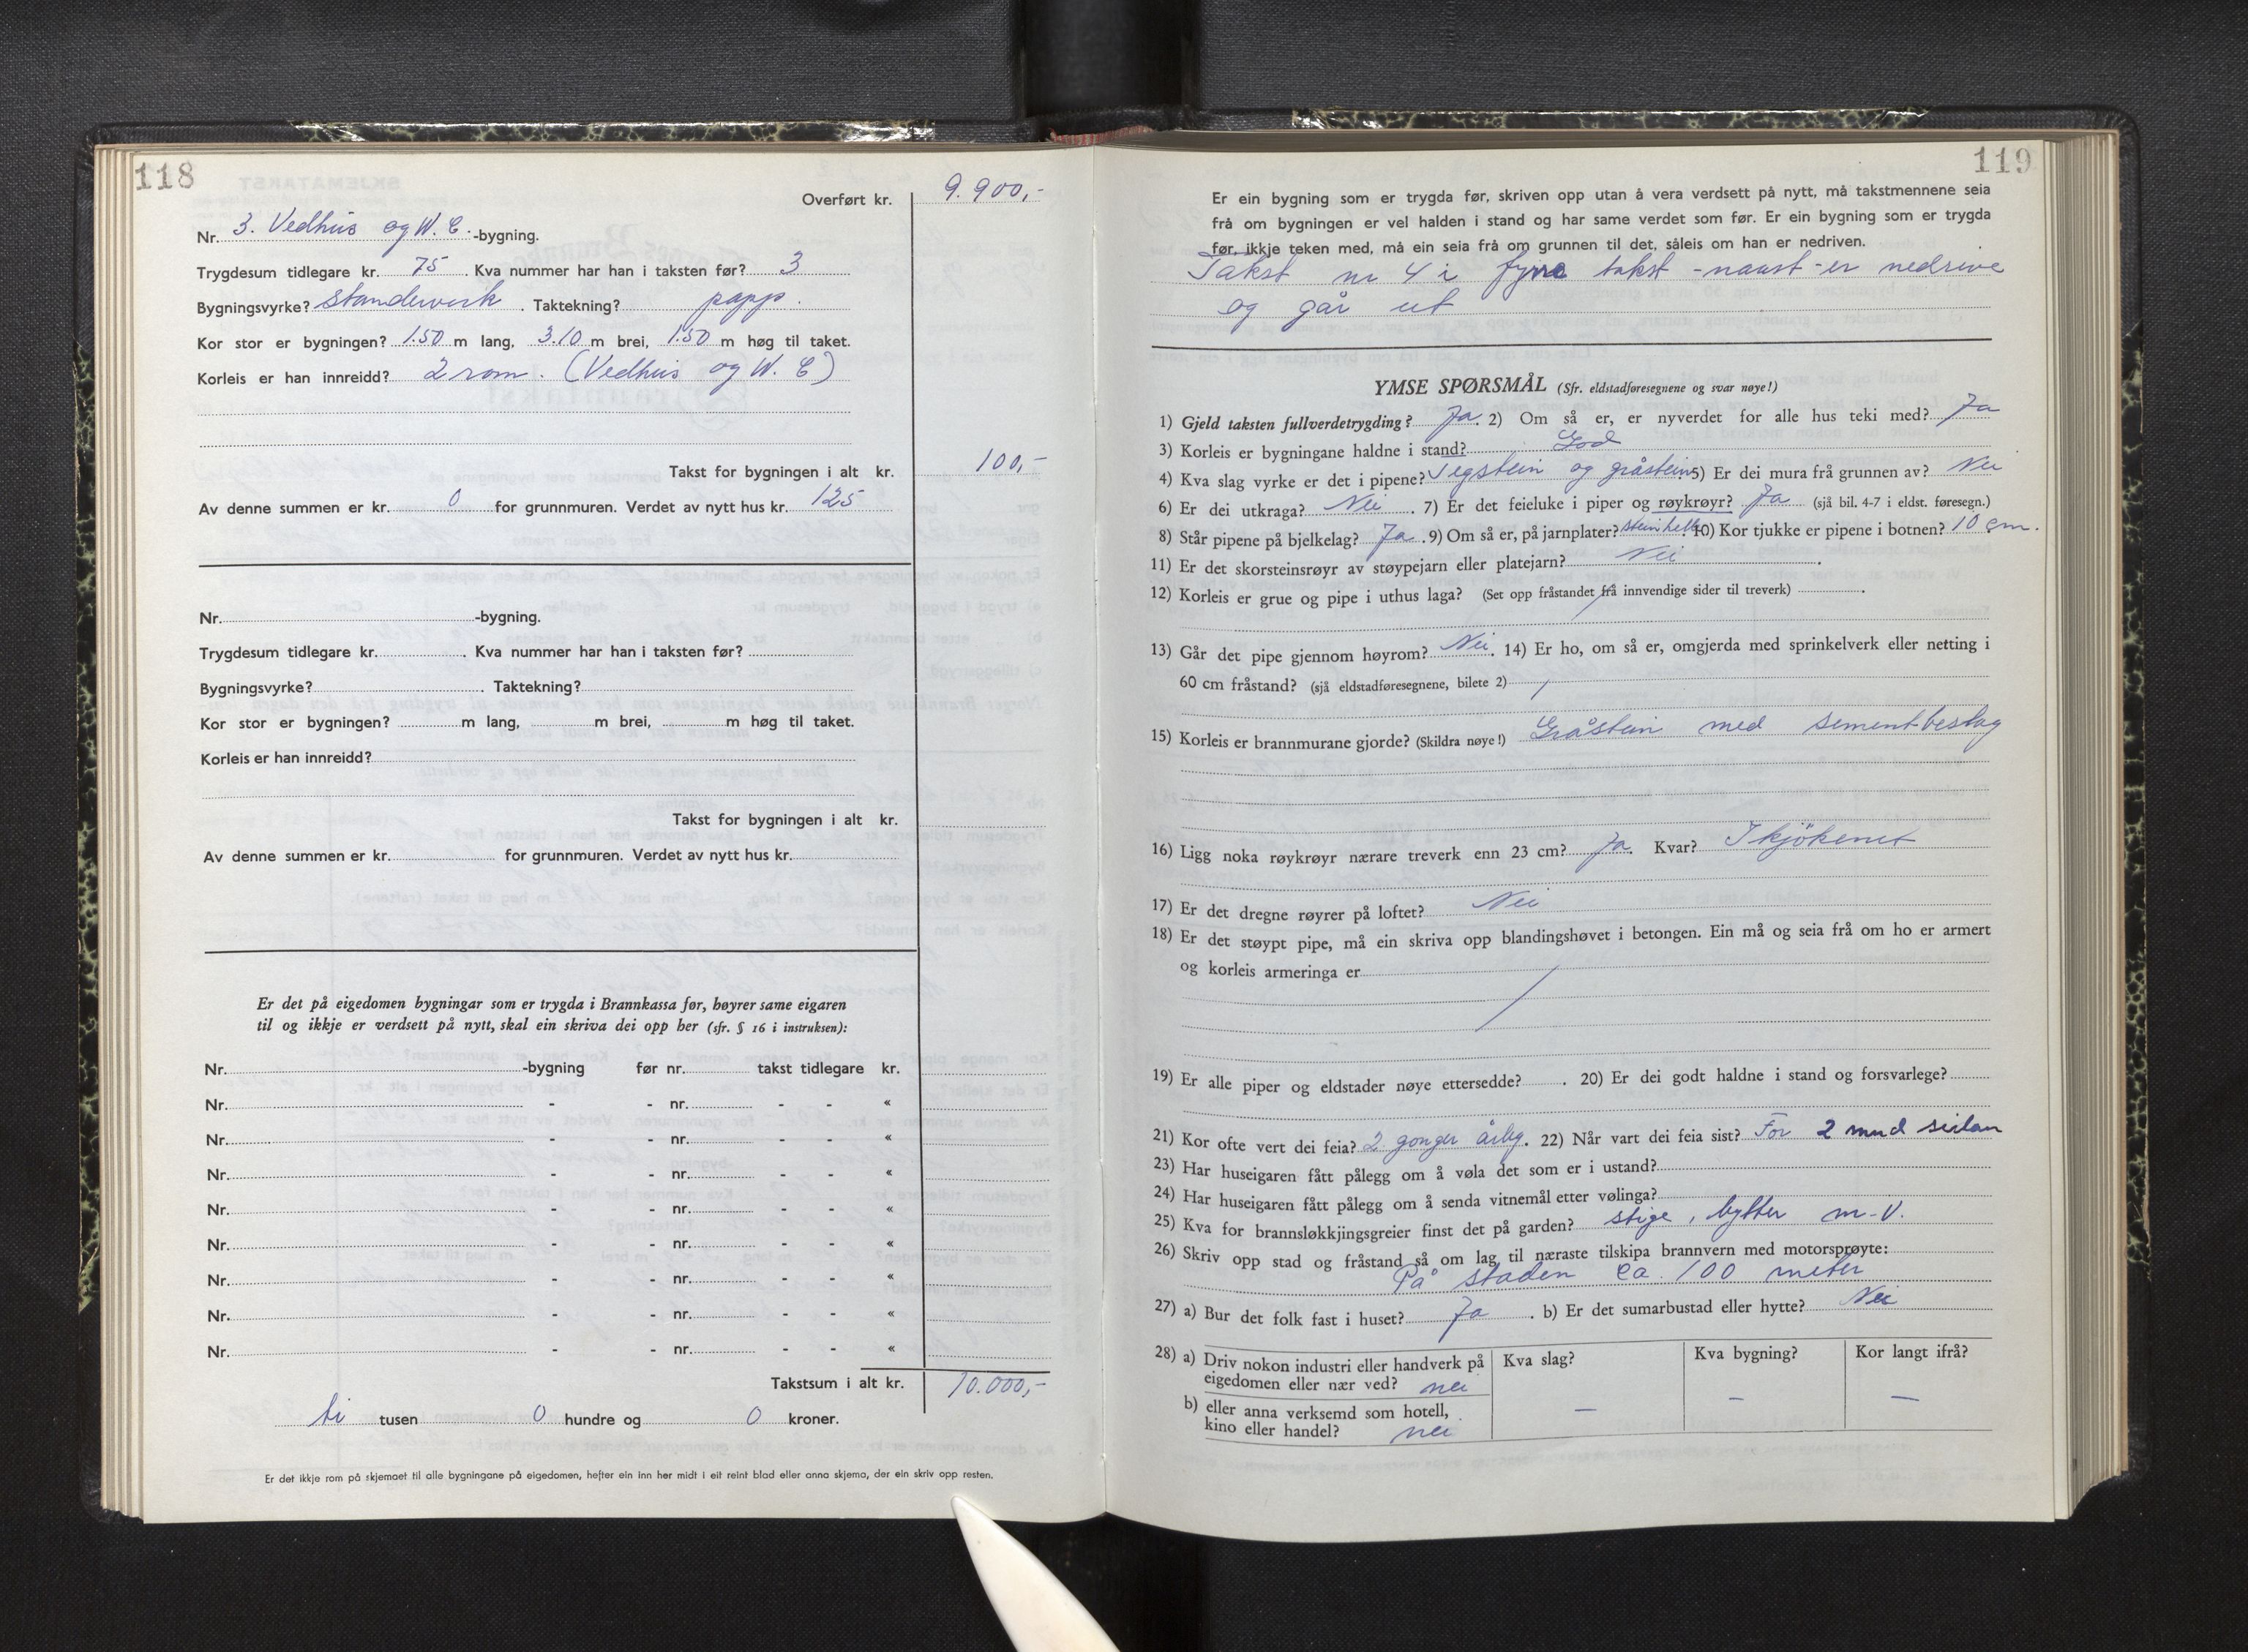 118
Overført kr. 9.900,-
Nr. 3. Vedhus og W.C.-bygning.
Trygdesum tidlegare kr. 75. Kva nummer har han i taksten før? 3
Bygningsvyrke? standeverk. Taktekning? papp.
Kor stor er bygningen? 1.50 m lang, 3.10 m brei, 1.50 m høg til taket.
Korleis er han innreidd? 2 rom. (Vedhus og W.C)
Takst for bygningen i alt kr. 100,-
Av denne summen er kr. 0 for grunnmuren. Verdet av nytt hus kr. 125
Nr. -bygning.
Trygdesum tidlegare kr. . Kva nummer har han i taksten før?
Bygningsvyrke? . Taktekning?
Kor stor er bygningen? m lang, m brei, m høg til taket.
Korleis er han innreidd?
Takst for bygningen i alt kr.
Av denne summen er kr. for grunnmuren. Verdet av nytt hus kr.
Er det på eigedomen bygningar som er trygda i Brannkassa før, høyrer same eigaren
til og ikkje er verdsett på nytt, skal ein skriva dei opp her (sfr. § 16 i instruksen):
Nr. -bygning før nr. takst tidlegare kr.
Nr. - - nr. - - «
Nr. - - nr. - - «
Nr. - - nr. - - «
Nr. - - nr. - - «
Nr. - - nr. - - «
Nr. - - nr. - - «
Nr. - - nr. - - «
Nr. - - nr. - - «
Takstsum i alt kr. 10.000,-
ti tusen 0 hundre og 0 kroner.
Er det ikkje rom på skjemaet til alle bygningane på eigedomen, hefter ein inn her midt i eit reint blad eller anna skjema, der ein skriv opp resten.
119
Er ein bygning som er trygda før, skriven opp utan å vera verdsett på nytt, må takstmennene seia
frå om bygningen er vel halden i stand og har same verdet som før. Er ein bygning som er trygda
før, ikkje teken med, må ein seia frå om grunnen til det, såleis om han er nedriven.
Takst nr 4 i fyrre takst - naust - er nedrive
og går ut
YMSE SPØRSMÅL (Sfr. eldstadføresegnene og svar nøye!)
1) Gjeld taksten fullverdetrygding? Ja. 2) Om så er, er nyverdet for alle hus teki med? Ja
3) Korleis er bygningane haldne i stand? God
4) Kva slag vyrke er det i pipene? Tegstein og gråstein. 5) Er dei mura frå grunnen av? Nei
6) Er dei utkraga? Nei. 7) Er det feieluke i piper og røykrøyr? Ja (sjå bil. 4-7 i eldst. føresegn.)
8) Står pipene på bjelkelag? Ja. 9) Om så er, på jarnplater? steinhelle. 10) Kor tjukke er pipene i botnen? 10 cm.
11) Er det skorsteinsrøyr av støypejarn eller platejarn? Nei.
12) Korleis er grue og pipe i uthus laga? (Set opp fråstandet frå innvendige sider til treverk) .
13) Går det pipe gjennom høyrom? Nei. 14) Er ho, om så er, omgjerda med sprinkelverk eller netting i
60 cm fråstand? (sjå eldstadføresegnene, bilete 2) /
15) Korleis er brannmurane gjorde? (Skildra nøye!) Gråstein med sementbeslag
16) Ligg noka røykrøyr nærare treverk enn 23 cm? Ja. Kvar? I kjökenet
17) Er det dregne røyrer på loftet? Nei
18) Er det støypt pipe, må ein skriva opp blandingshøvet i betongen. Ein må og seia frå om ho er armert
og korleis armeringa er /
19) Er alle piper og eldstader nøye ettersedde? . 20) Er dei godt haldne i stand og forsvarlege?
21) Kor ofte vert dei feia? 2 gonger årleg. 22) Når vart dei feia sist? For 2 mnd sidan
23) Har huseigaren fått pålegg om å vøla det som er i ustand?
24) Har huseigaren fått pålegg om å senda vitnemål etter vølinga?
25) Kva for brannsløkkjingsgreier finst det på garden? stige, bytter m.v.
26) Skriv opp stad og fråstand så om lag til næraste tilskipa brannvern med motorsprøyte:
På staden ca. 100 meter
27) a) Bur det folk fast i huset? Ja. b) Er det sumarbustad eller hytte? Nei
28) a) Driv nokon industri eller handverk på Kva slag? Kva bygning? Kor langt ifrå?
eigedomen eller nær ved? nei
b) eller anna verksemd som hotell, - - -
kino eller handel? nei